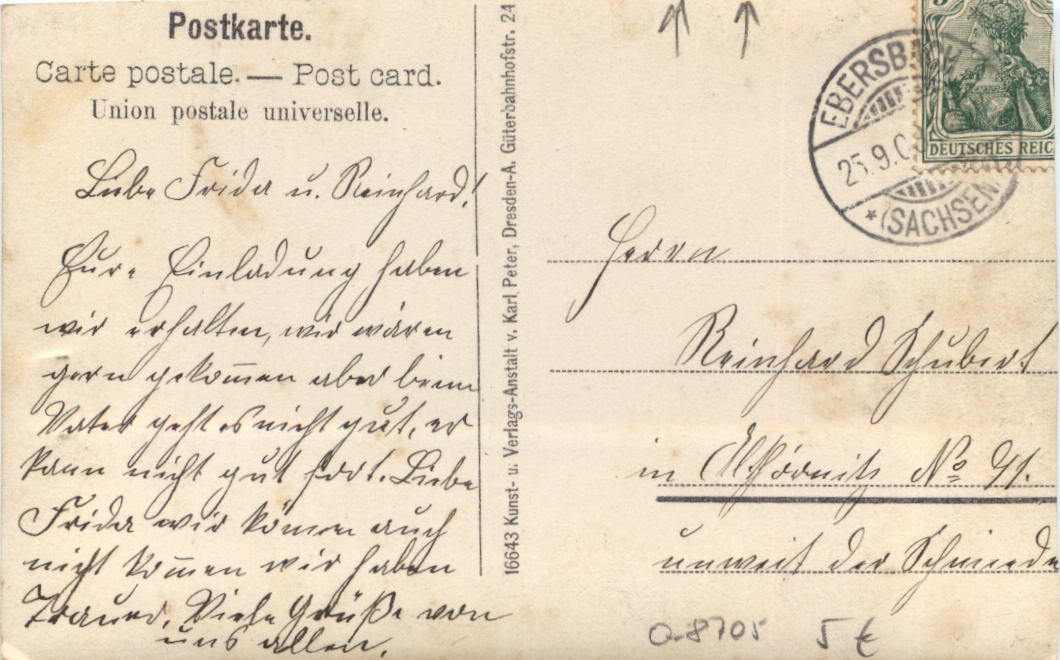 Postkarte.
Carte postale. — Post card.
Union postale universelle.
Liebe Frida u. Reinhard!
Eure Einladung haben
wir erhalten, wir wären
gern gekom̅en aber beim
Vater geht es nicht gut, er
kann nicht gut fort. Liebe
Frida wir kön̅en auch
nicht kom̅en wir haben
Trauer. Viele Grüße von
uns allen.
16643 Kunst- u. Verlags-Anstalt v. Karl Peter, Dresden-A. Güterbahnhofstr. 24
EBERSBACH
25.9.0
* (SACHSEN)
DEUTSCHES REICH
Herrn
Reinhard Schubert
in No 41.
unweit der Schmiede
O-8705 5 €